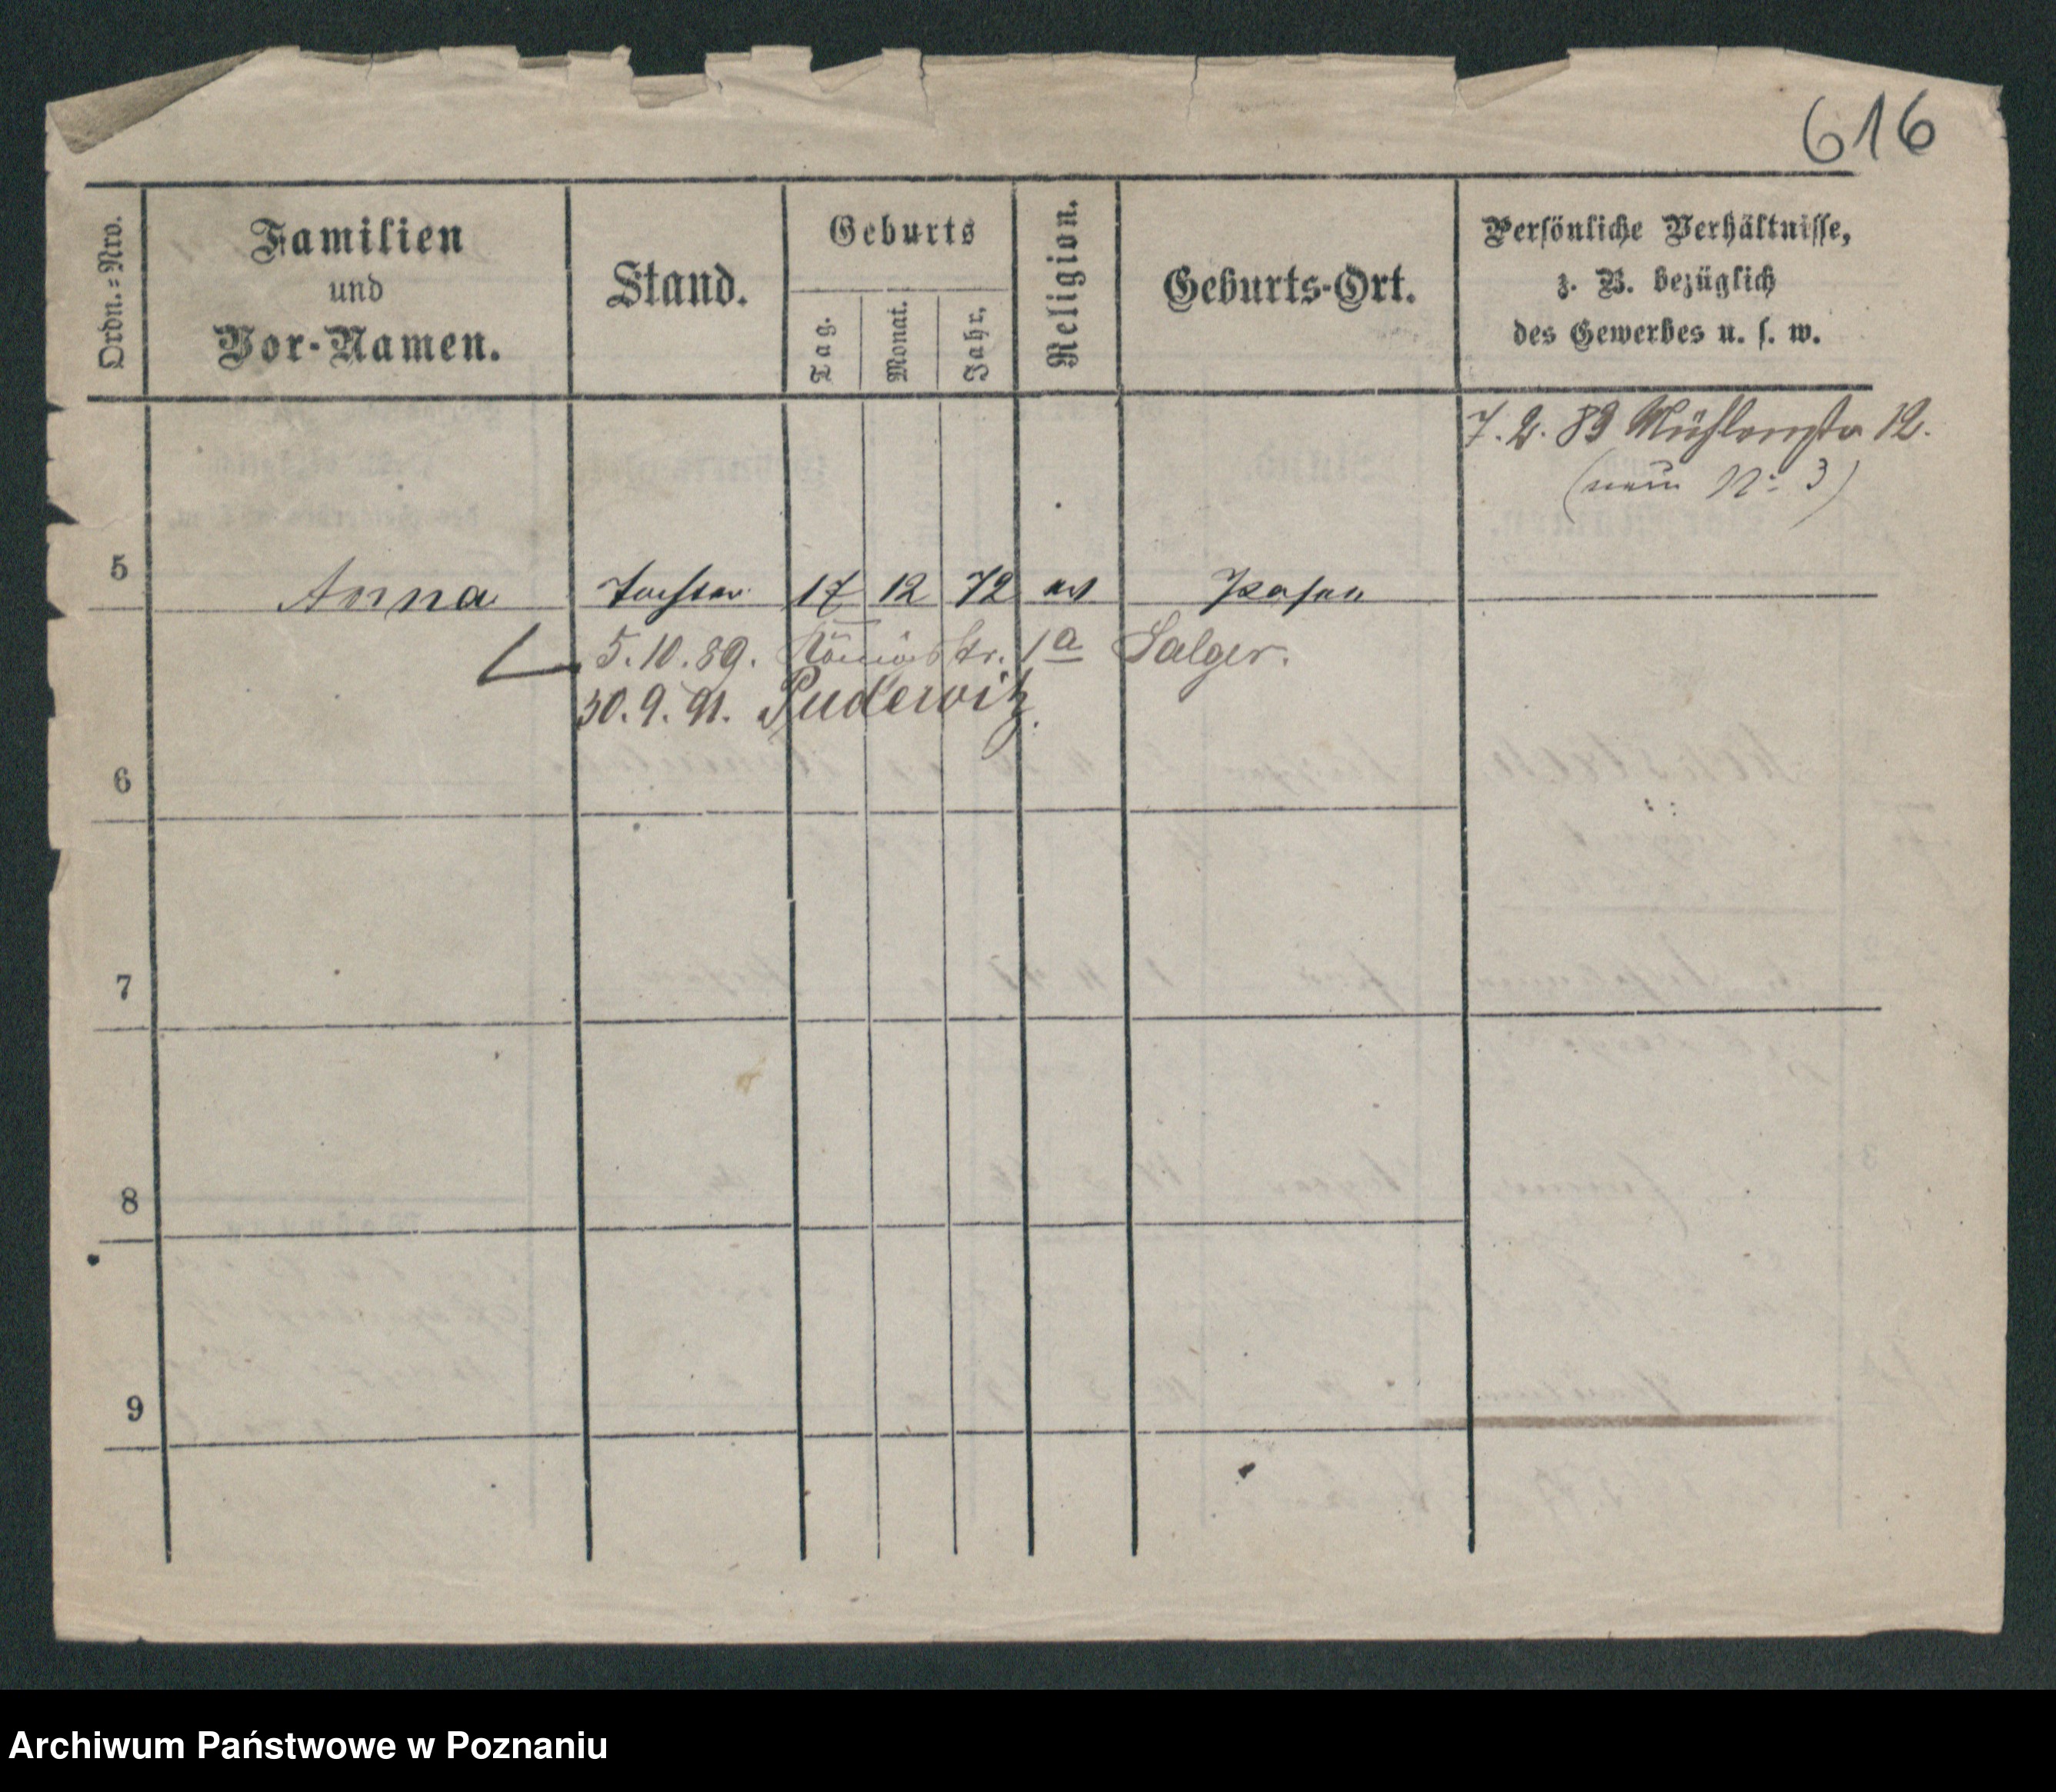 616
Ordn.=Nro.
Familien
und
Vor-Namen.
Stand.
Geburts
Tag.
Monat.
Jahr.
Religion.
Geburts-Ort.
Persönliche Verhältnisse,
z. B. bezüglich
des Gewerbes u. s. w.
7. 2. 89 Mühlenstr 12.
(neu No 3)
5 Anna Tochter 17 12 72 ev Posen
5.10.89. Königstr. 1a Salger.
30.9.91. Pudewitz.
6
7
8
9
Archiwum Państwowe w Poznaniu